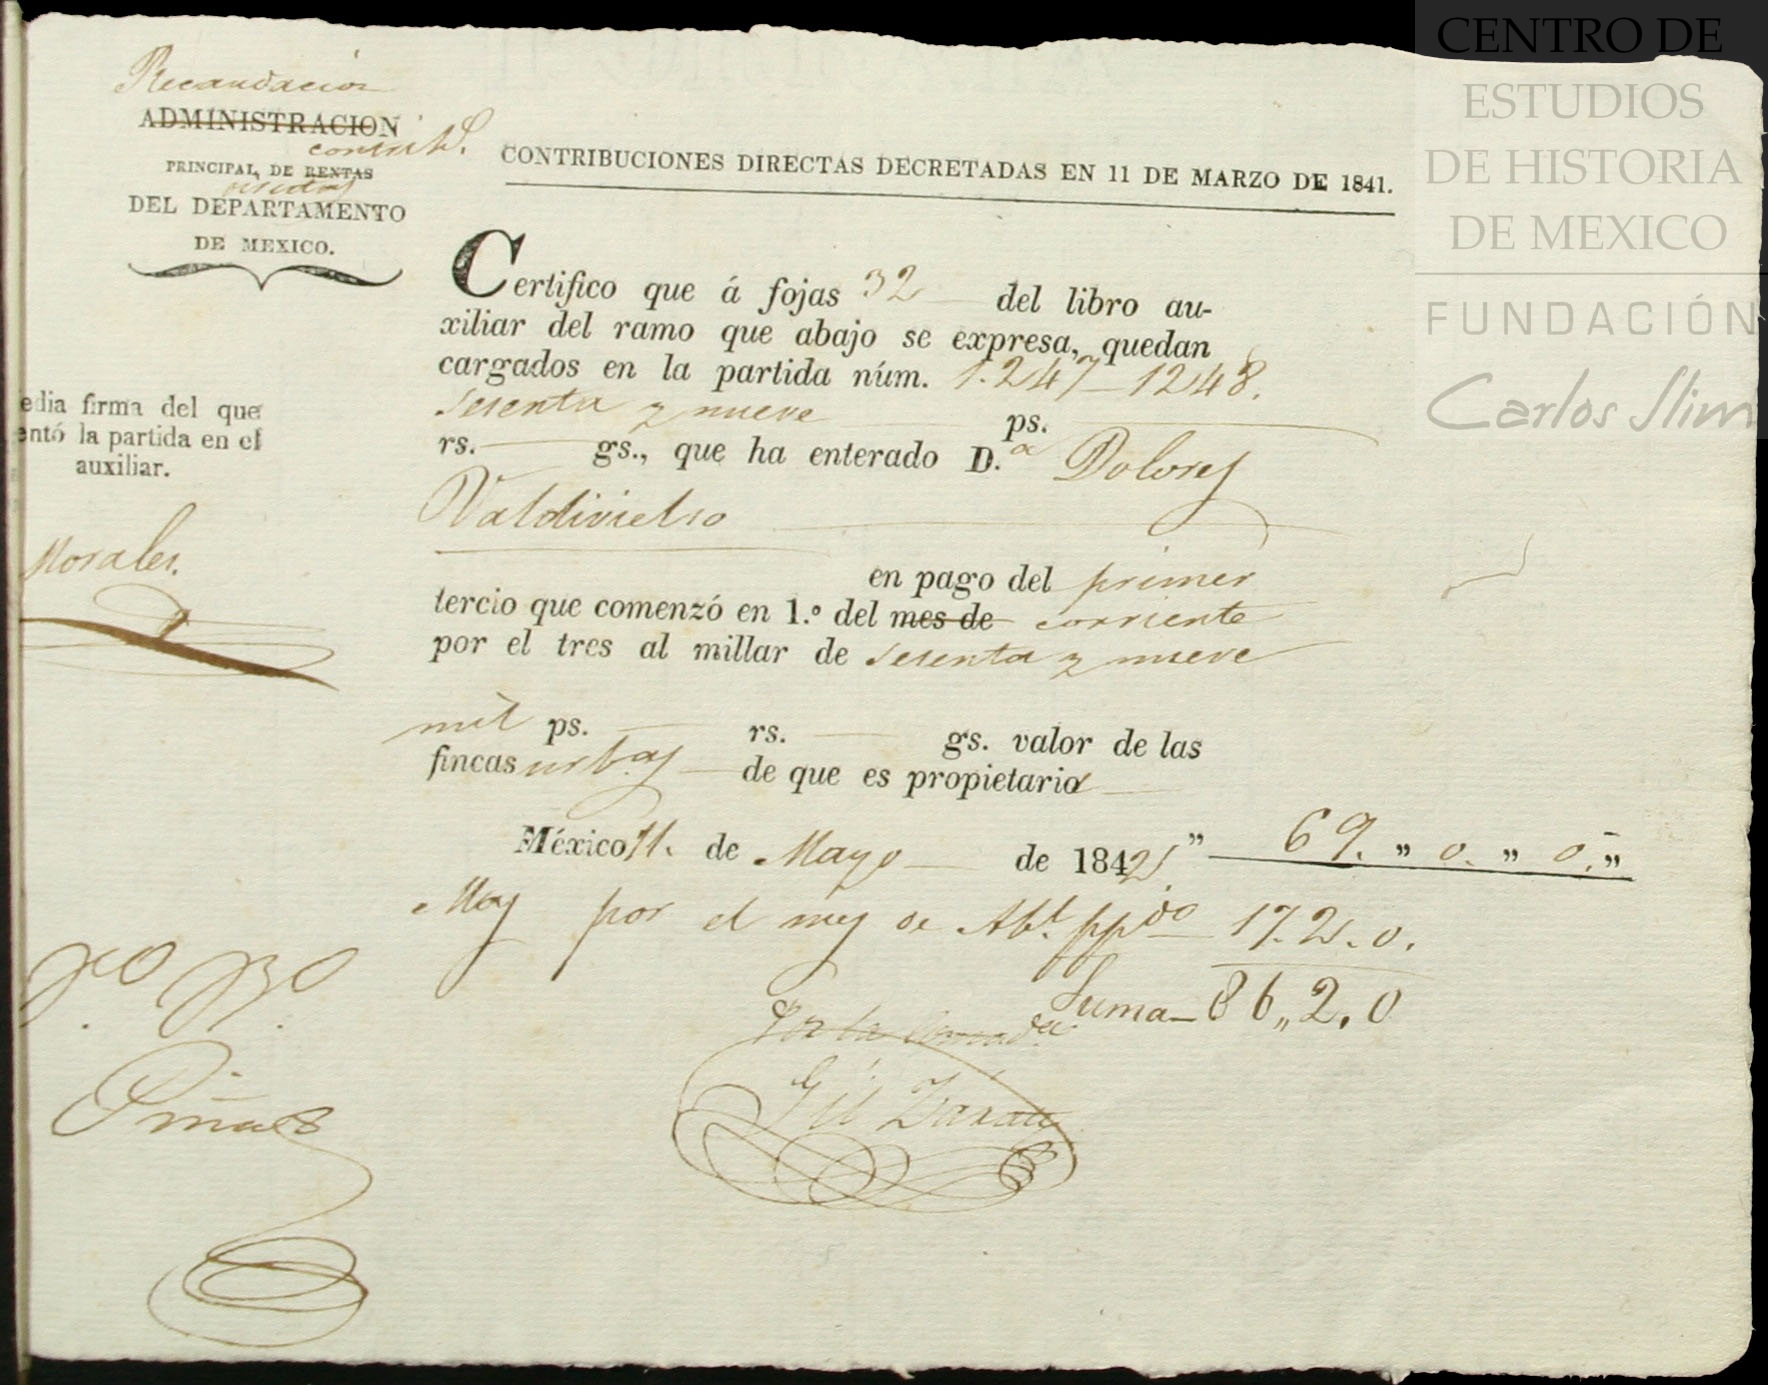 Recaudacion
ADMINISTRACION
contrib.s
PRINCIPAL DE RENTAS
directas
DEL DEPARTAMENTO
DE MEXICO.
CONTRIBUCIONES DIRECTAS DECRETADAS EN 11 DE MARZO DE 1841.
Certifico que á fojas 32 del libro au-
xiliar del ramo que abajo se expresa, quedan
cargados en la partida núm. 1.247-1248.
sesenta y nueve ps.
rs. gs., que ha enterado D.a Dolores
Valdivielso
en pago del primer
tercio que comenzó en 1.º del mes de corriente
por el tres al millar de sesenta y nueve
mil ps. rs. gs. valor de las
fincas urb.as de que es propietaria
México 11. de Mayo de 1842. " 69. " 0. " 0. "
Mas por el mes de Ab.l pp.do 17.2.0.
Suma 86,,2.0
Gil Zárate
edia firma del que
entó la partida en el
auxiliar.
Morales.
Piña
CENTRO DE
ESTUDIOS
DE HISTORIA
DE MEXICO
FUNDACIÓN
Carlos Slim